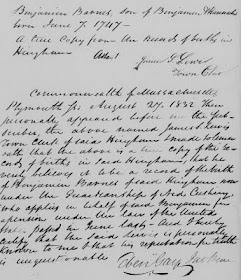 Benjamin Barnes, son of Benjamin & Hannah
born June 7. 1747 —
A true Copy from the Records of births in
Hingham Attest
James S. Lewis
Town Clerk
Commonwealth of Massachusetts
Plymouth ss. August 27. 1832 Then
personally appeared before me the sub-
scriber, the above named James S. Lewis
Town Clerk of said Hingham & made to known
oath that the above is a true copy of the re-
cords of births in said Hingham, that he
verily believes it to be a record of the birth
of Benjamin Barnes of said Hingham now
under the Guardianship of Ned Cushing
who applies in behalf of said Benjamin for
a pension under the law of the United
States passed in June last. And I further
certify that the said Lewis is personally
known to me & that his reputation for truth
is unquestionable